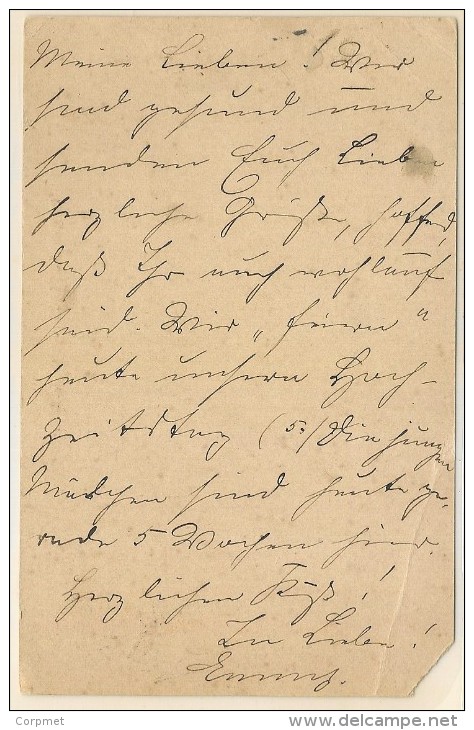 Meine Lieben! Wir
sind gesund und
senden Euch Liebe
herzliche Grüße, hoffend,
daß Ihr auch wohlauf
seid. Wir „feiern“
heute unsern Hoch-
zeitstag (5.) Die jungen
Mädchen sind heute ge-
rade 5 Wochen hier.
Herzlichen Kuß!
In Liebe!
Corpmet
www.delcampe.net